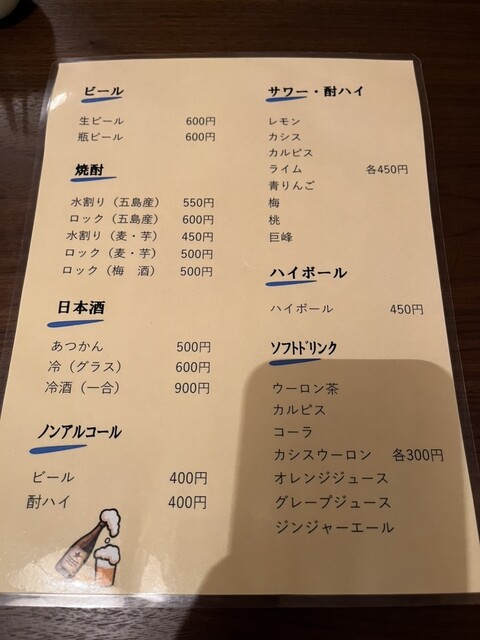 ビール
生ビール 600円
瓶ビール 600円
焼酎
水割り（五島産） 550円
ロック（五島産） 600円
水割り（麦・芋） 450円
ロック（麦・芋） 500円
ロック（梅　酒） 500円
日本酒
あつかん 500円
冷（グラス） 600円
冷酒（一合） 900円
ノンアルコール
ビール 400円
酎ハイ 400円
サワー・酎ハイ
レモン
カシス
カルピス
ライム 各450円
青りんご
梅
桃
巨峰
ハイボール
ハイボール 450円
ソフトドリンク
ウーロン茶
カルピス
コーラ
カシスウーロン 各300円
オレンジジュース
グレープジュース
ジンジャーエール